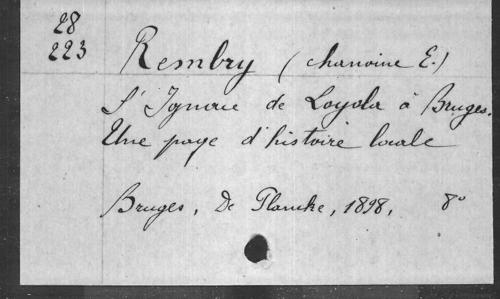 28
223
Rembry (chanoine E.)
St Ignace de Loyola à Bruges.
Une page d'histoire locale
Bruges, De Plancke, 1898, 8°